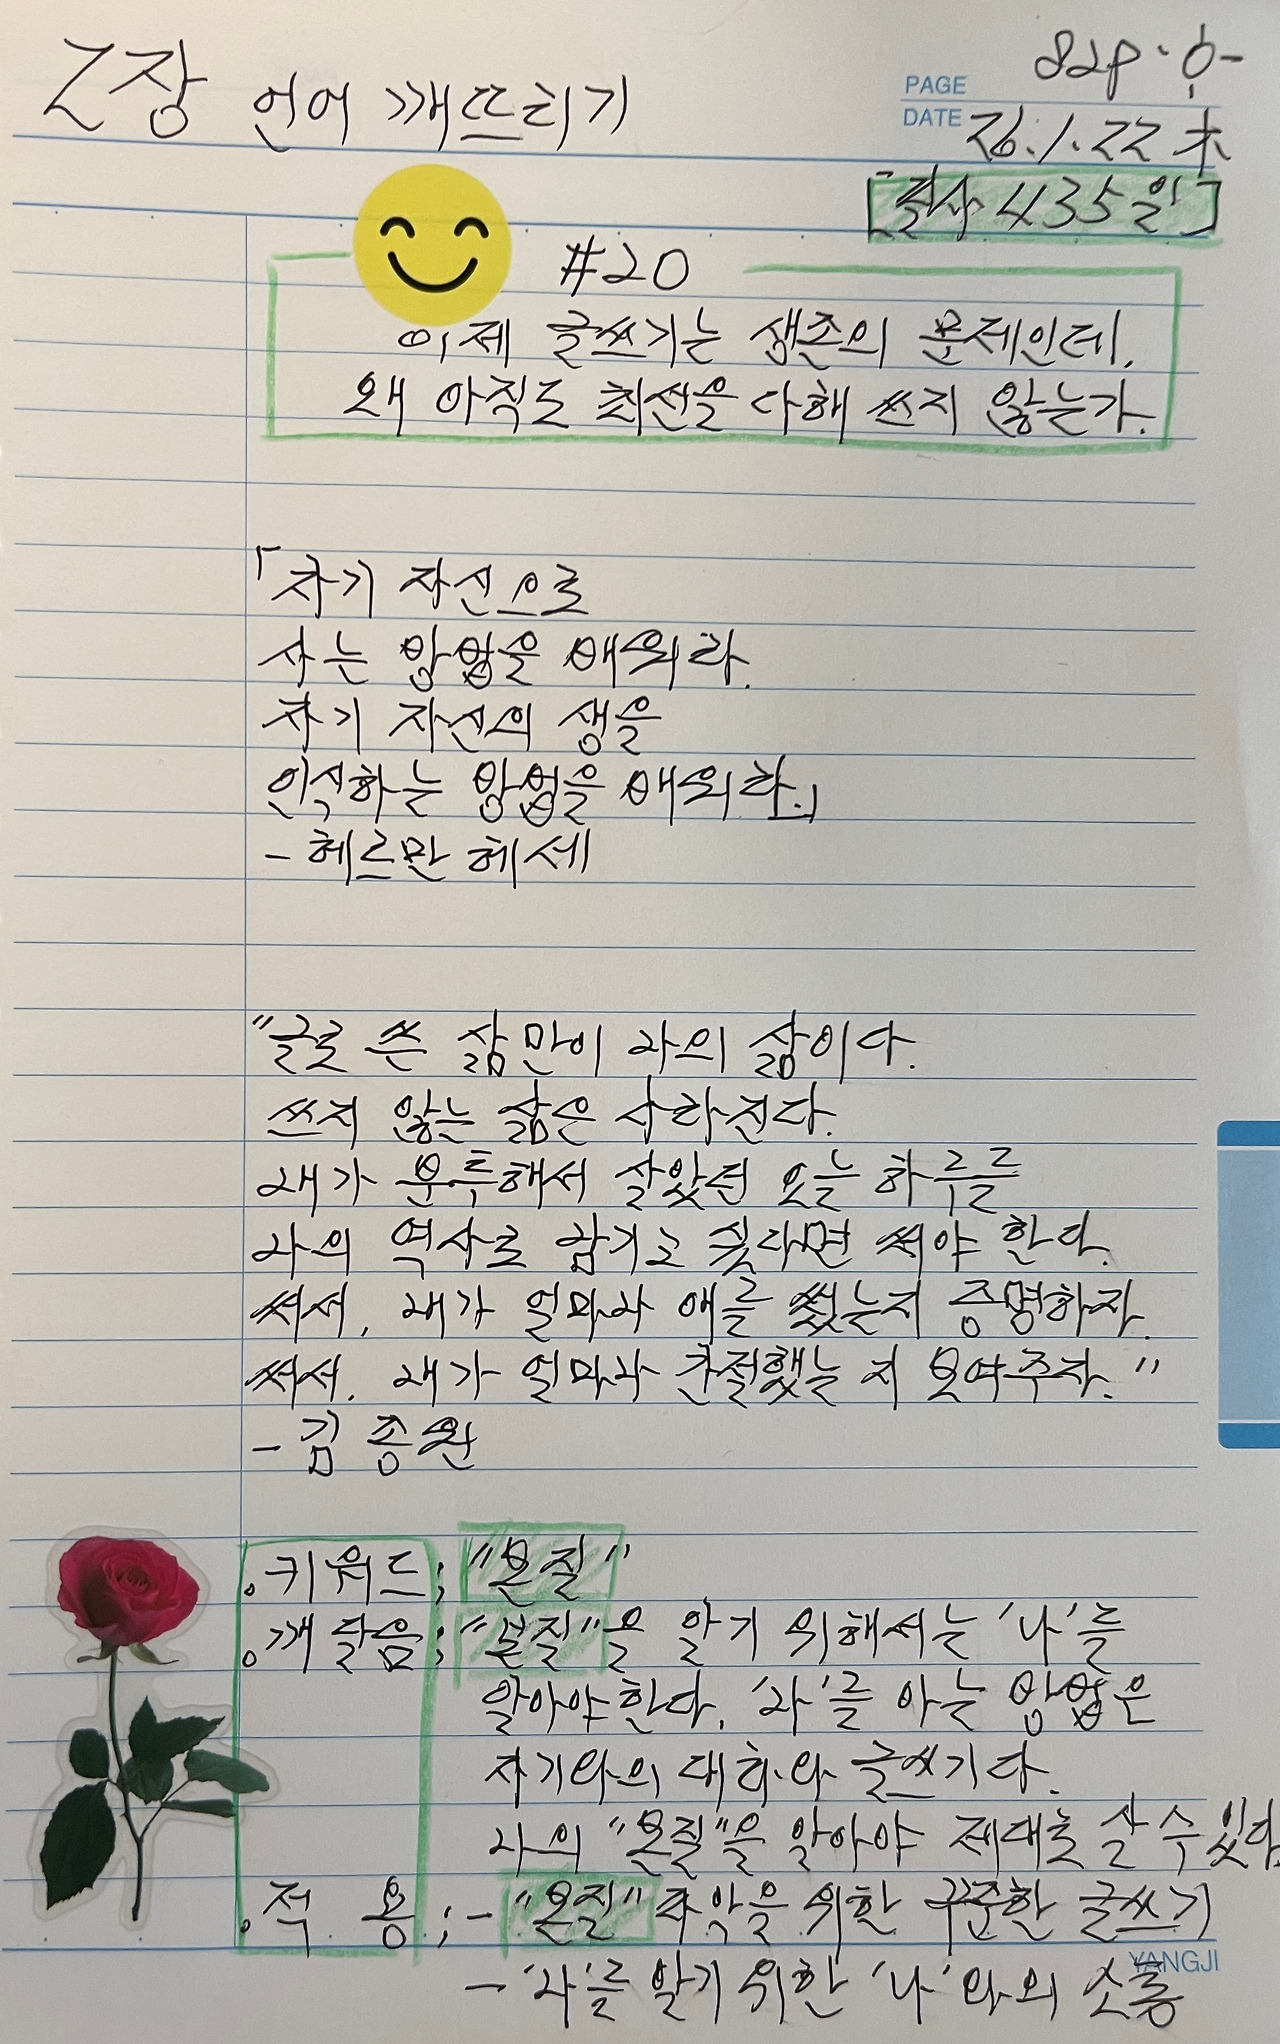 2장 언어 깨뜨리기
PAGE 82p.
DATE 26.1.22 木
[필사 435일]
#20
이제 글쓰기는 생존의 문제인데,
왜 아직도 최선을 다해 쓰지 않는가.
「자기 자신으로
사는 방법을 배워라.
자기 자신의 생을
인식하는 방법을 배워라.」
- 헤르만 헤세
"글로 쓴 삶만이 나의 삶이다.
쓰지 않는 삶은 사라진다.
내가 분투해서 살았던 오늘 하루를
나의 역사로 남기고 싶다면 써야 한다.
써서, 내가 얼마나 애를 썼는지 증명하자.
써서, 내가 얼마나 간절했는지 보여주자."
- 김종원
.키워드; "본질"
.깨달음; "본질"을 알기 위해서는 '나'를
알아야한다. '나'를 아는 방법은
자기와의 대화와 글쓰기다.
나의 "본질"을 알아야 제대로 살 수 있다.
.적 용; - "본질" 파악을 위한 꾸준한 글쓰기
YANGJI
- '나'를 알기 위한 '나'와의 소통